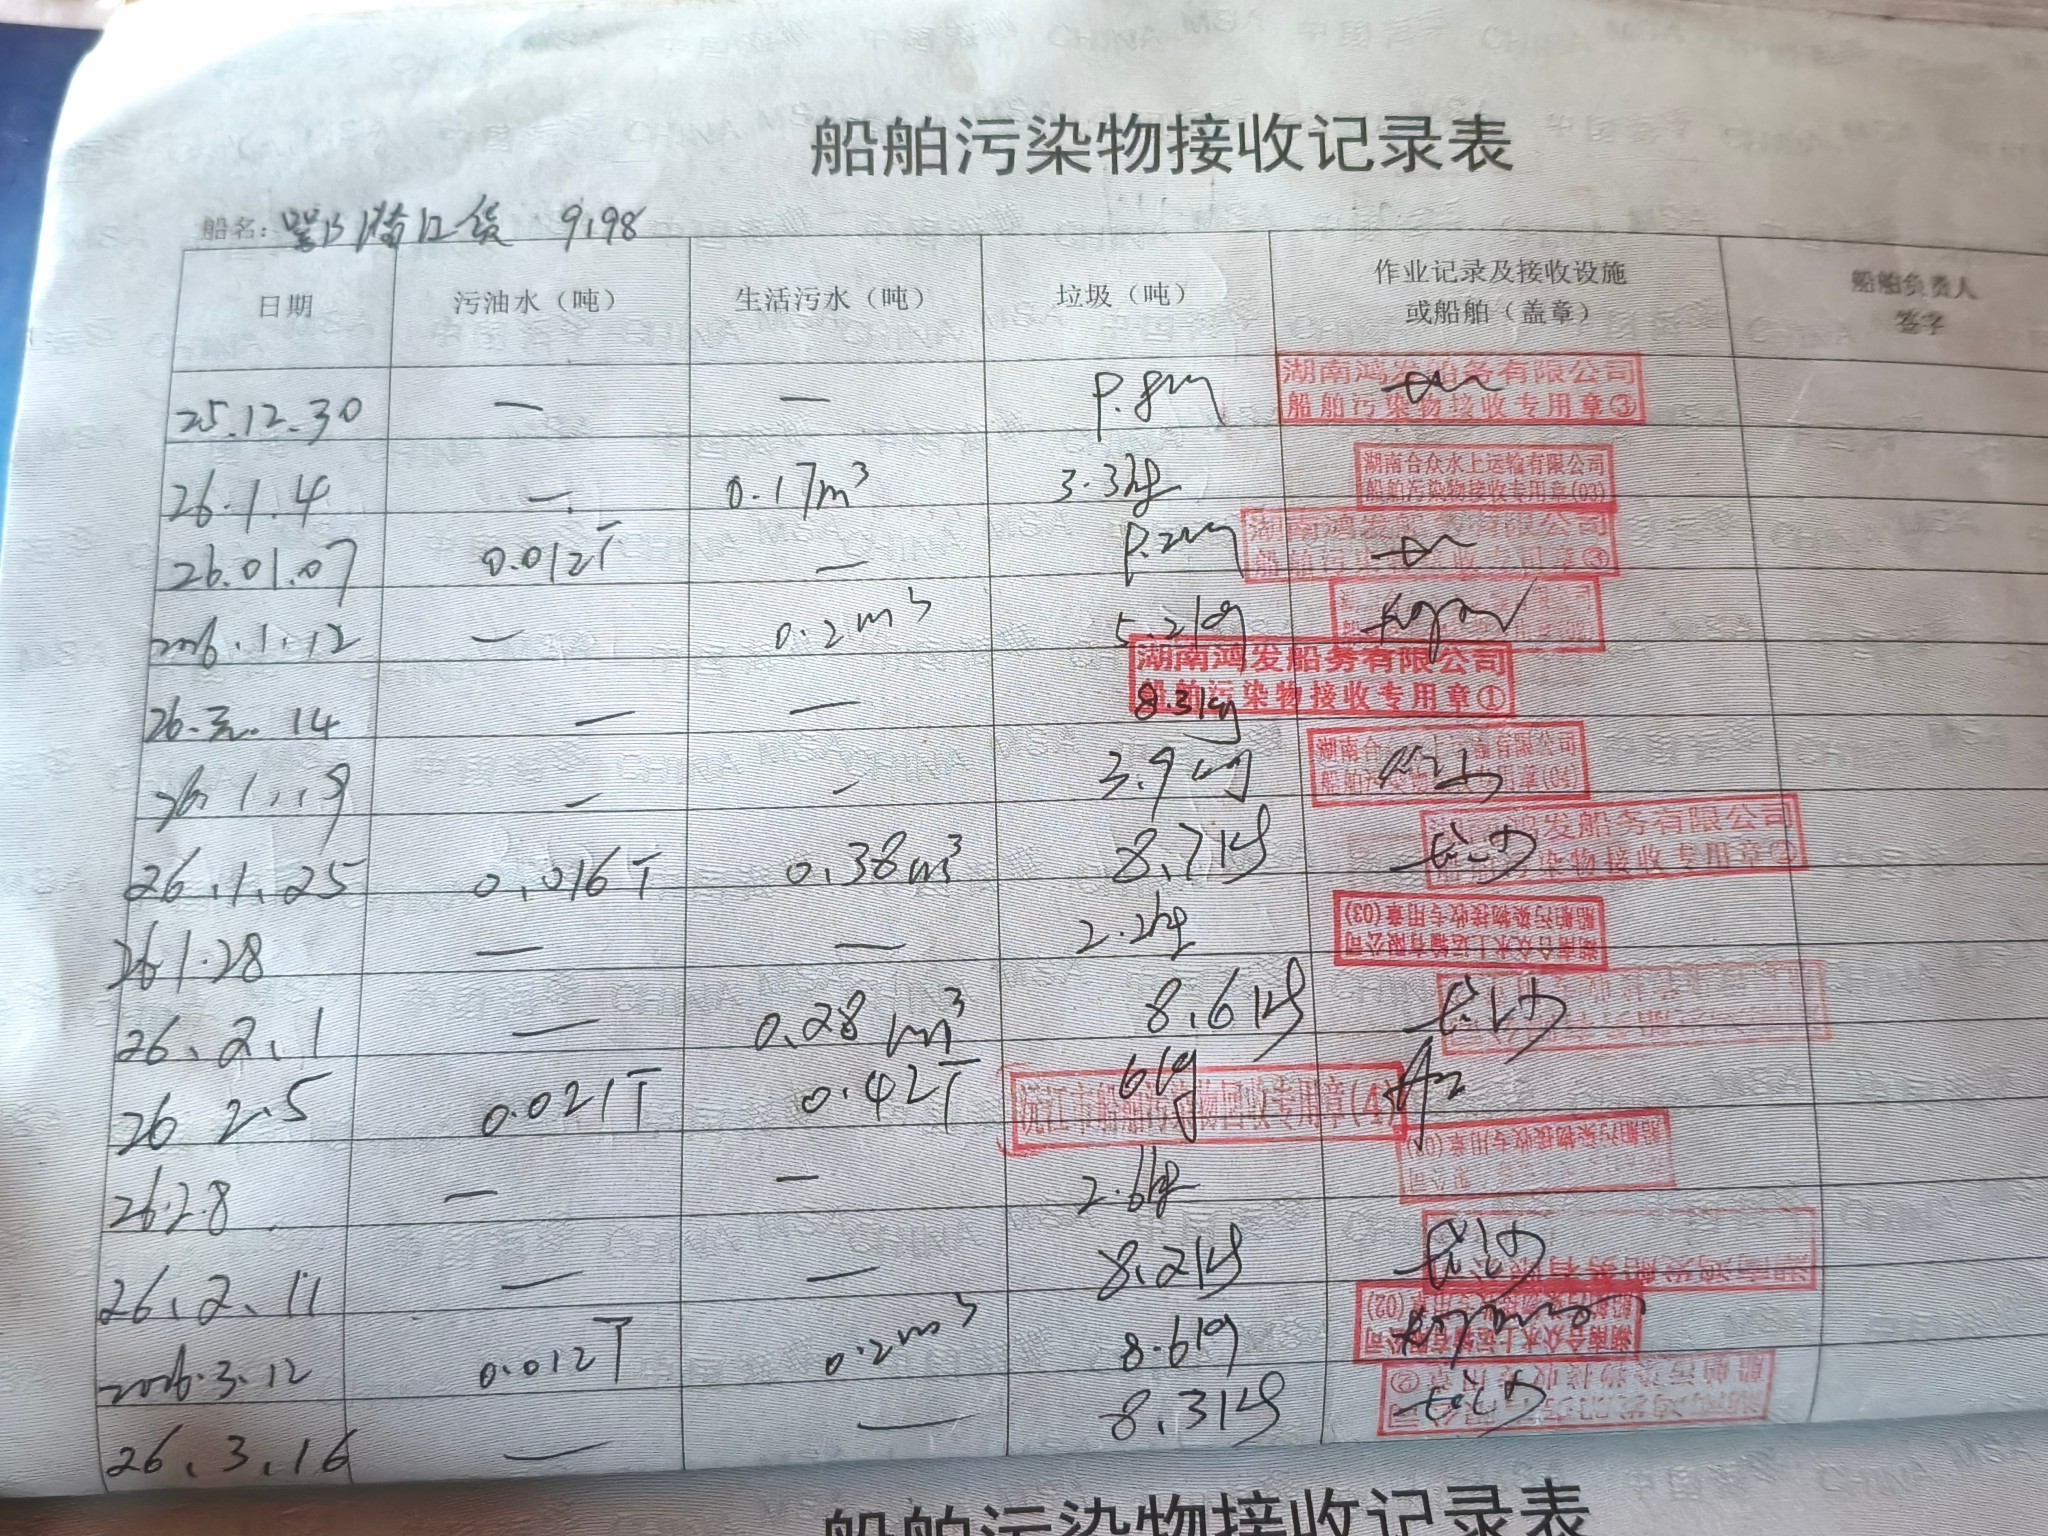 船舶污染物接收记录表
船名: 9198
日期 污油水（吨） 生活污水（吨） 垃圾（吨） 作业记录及接收设施或船舶（盖章） 船舶负责人签字
25.12.30 — — 湖南鸿发船务有限公司 船舶污染物接收专用章③
26.1.4 — 0.17m³ 3.3kg 湖南合众水上运输有限公司 船舶污染物接收专用章(03)
26.01.07 0.012T — 湖南鸿发船务有限公司 船舶污染物接收专用章③
2026.1.12 — 0.2m³ 5.2kg
26.元.14 — — 8.3kg 湖南鸿发船务有限公司 船舶污染物接收专用章①
26.1.19 — — 3.9kg
26.1.25 0.016T 0.38m³ 8.7kg 鸿发船务有限公司 污染物接收专用章
26.1.28 — — 2.2kg 湖南合众水上运输有限公司 船舶污染物接收专用章(03)
26.2.1 — 0.28m³ 8.6kg 长沙
26.2.5 0.021T 0.42T 6kg 沅江市船舶污染物回收专用章(4)
26.2.8 — — 2.6kg 船舶污染物接收专用章
26.2.11 — — 8.2kg 长沙 湖南鸿发船务有限公司
2026.3.12 0.012T 0.2m³ 8.6kg 湖南合众水上运输有限公司 (02)
26.3.16 — — 8.3kg 长沙 ②
船舶污染物接收记录表